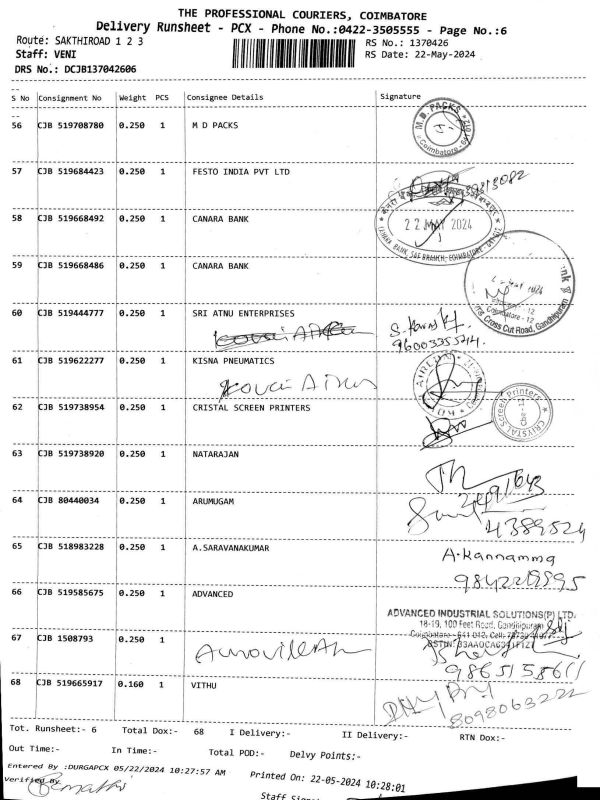 THE PROFESSIONAL COURIERS, COIMBATORE
Delivery Runsheet - PCX - Phone No.:0422-3505555 - Page No.:6
Route: SAKTHIROAD 1 2 3
RS No.: 1370426
Staff: VENI
RS Date: 22-May-2024
DRS No.: DCJB137042606
S No Consignment No Weight PCS Consignee Details Signature
56 CJB 519708780 0.250 1 M D PACKS
M.D. PACKS
Coimbatore
57 CJB 519684423 0.250 1 FESTO INDIA PVT LTD
58 CJB 519668492 0.250 1 CANARA BANK
22 MAY 2024
59 CJB 519668486 0.250 1 CANARA BANK
Coimbatore - 12
Cross Cut Road, Gandhipuram
60 CJB 519444777 0.250 1 SRI ATNU ENTERPRISES
61 CJB 519622277 0.250 1 KISNA PNEUMATICS
62 CJB 519738954 0.250 1 CRISTAL SCREEN PRINTERS
CRIYSTAL Screen Printers
Cbe - 12
63 CJB 519738920 0.250 1 NATARAJAN
64 CJB 80440034 0.250 1 ARUMUGAM
4389524
65 CJB 518983228 0.250 1 A.SARAVANAKUMAR
A.Kannamma
66 CJB 519585675 0.250 1 ADVANCED
ADVANCED INDUSTRIAL SOLUTIONS(P) LTD.
18-19, 100 Feet Road, Gandhipuram
67 CJB 1508793 0.250 1
68 CJB 519665917 0.160 1 VITHU
8098063222
Tot. Runsheet:- 6 Total Dox:- 68 I Delivery:- II Delivery:- RTN Dox:-
Out Time:- In Time:- Total POD:- Delvy Points:-
Entered By :DURGAPCX 05/22/2024 10:27:57 AM Printed On: 22-05-2024 10:28:01
Verified By
Staff